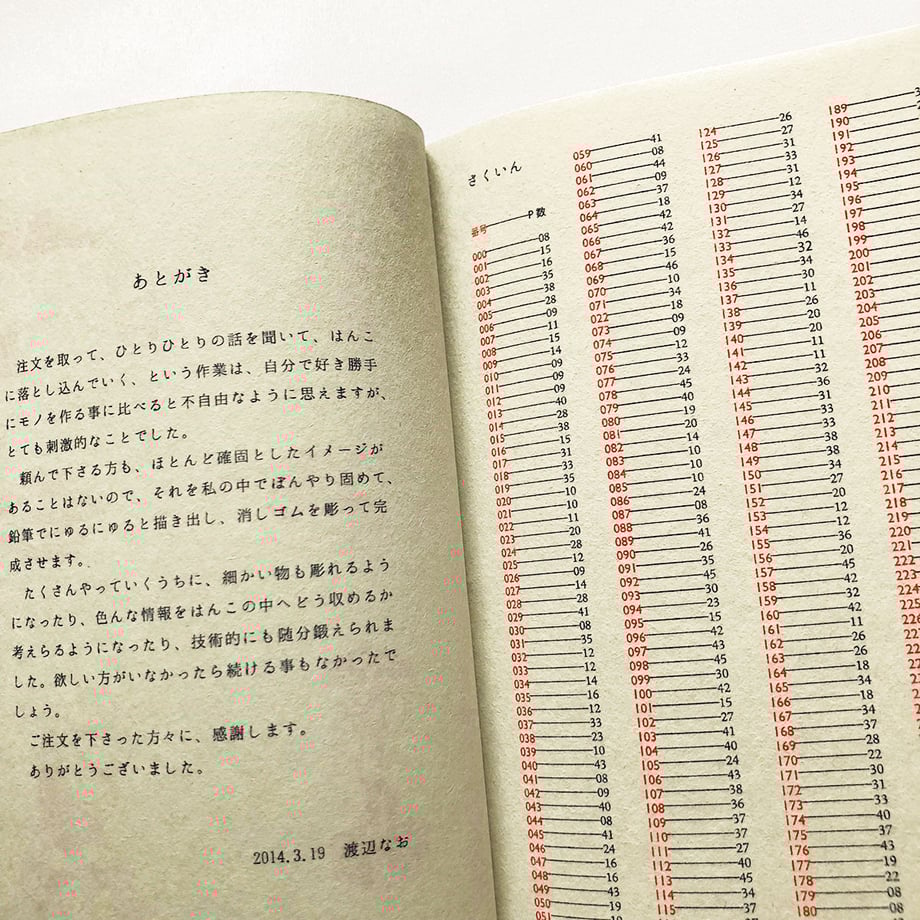 あとがき
注文を取って、ひとりひとりの話を聞いて、はんこ
に落とし込んでいく、という作業は、自分で好き勝手
にモノを作る事に比べると不自由なように思えますが、
とても刺激的なことでした。
頼んで下さる方も、ほとんど確固としたイメージが
あることはないので、それを私の中でぼんやり固めて、
鉛筆でにゅるにゅると描き出し、消しゴムを彫って完
成させます。
たくさんやっていくうちに、細かい物も彫れるよう
になったり、色んな情報をはんこの中へどう収めるか
考えらるようになったり、技術的にも随分鍛えられま
した。欲しい方がいなかったら続ける事もなかったで
しょう。
ご注文を下さった方々に、感謝します。
ありがとうございました。
2014.3.19 渡辺なお
さくいん
番号 P数
000 08
001 15
002 16
003 35
004 38
005 28
006 09
007 11
008 15
009 14
010 09
011 09
012 09
013 40
014 28
015 38
016 15
017 31
018 33
019 35
020 10
021 10
022 11
023 20
024 28
025 12
026 09
027 14
028 28
029 41
030 08
031 35
032 12
033 12
034 14
035 16
036 12
037 33
038 23
039 10
040 43
041 08
042 09
043 40
044 08
045 41
046 24
047 16
048 16
049 43
050 19
051 19
059 41
060 08
061 44
062 09
063 37
064 18
065 42
066 42
067 36
068 15
069 46
070 10
071 34
022 18
073 09
074 09
075 12
076 33
077 24
078 45
079 40
080 19
081 20
082 14
083 10
084 10
085 10
086 24
087 08
088 36
089 41
090 26
091 35
092 45
093 30
094 23
095 15
096 42
097 43
098 45
099 30
100 42
101 15
102 27
103 41
104 40
105 24
106 43
107 38
108 36
109 37
110 37
111 27
112 42
113 45
114 34
115 37
124 26
125 27
126 31
127 33
128 31
129 12
130 34
131 27
132 14
133 46
134 32
135 34
136 30
137 11
138 26
139 20
140 20
141 11
142 11
143 32
144 36
145 31
146 33
147 33
148 38
149 31
150 34
151 27
152 20
153 12
154 12
155 36
156 20
157 45
158 42
159 32
160 42
161 11
162 26
163 26
164 18
165 34
166 18
167 34
168 37
169 28
170 22
171 30
172 31
173 33
174 40
175 37
176 43
177 19
178 22
179 08
180 08
189
190
191
192
193
194
195
196
197
198
199
200
201
202
203
204
205
206
207
208
209
210
211
212
213
214
215
216
217
218
219
220
221
222
223
224